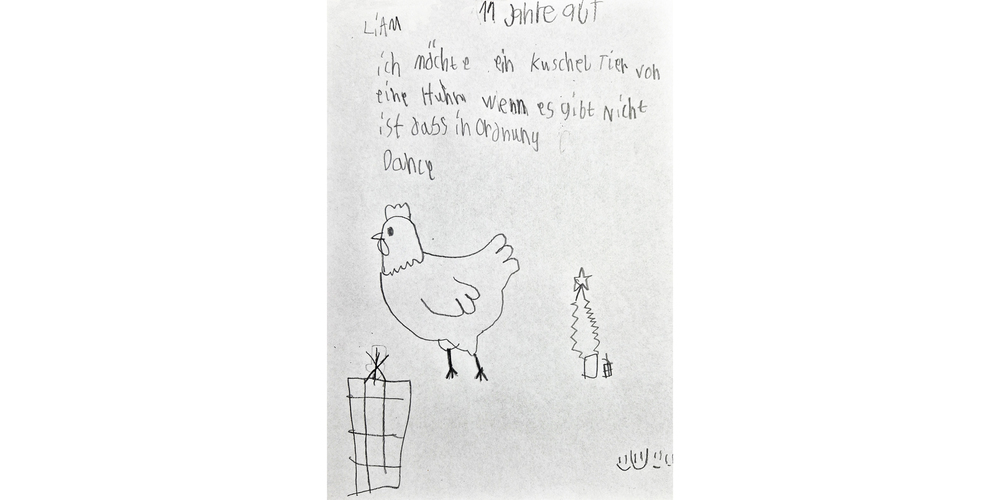 LiAM
11 Jahre aút
ich möchte ein Kuschel Tier von
eine Huhn wenn es gibt Nicht
ist dass in Ordnung
Dance